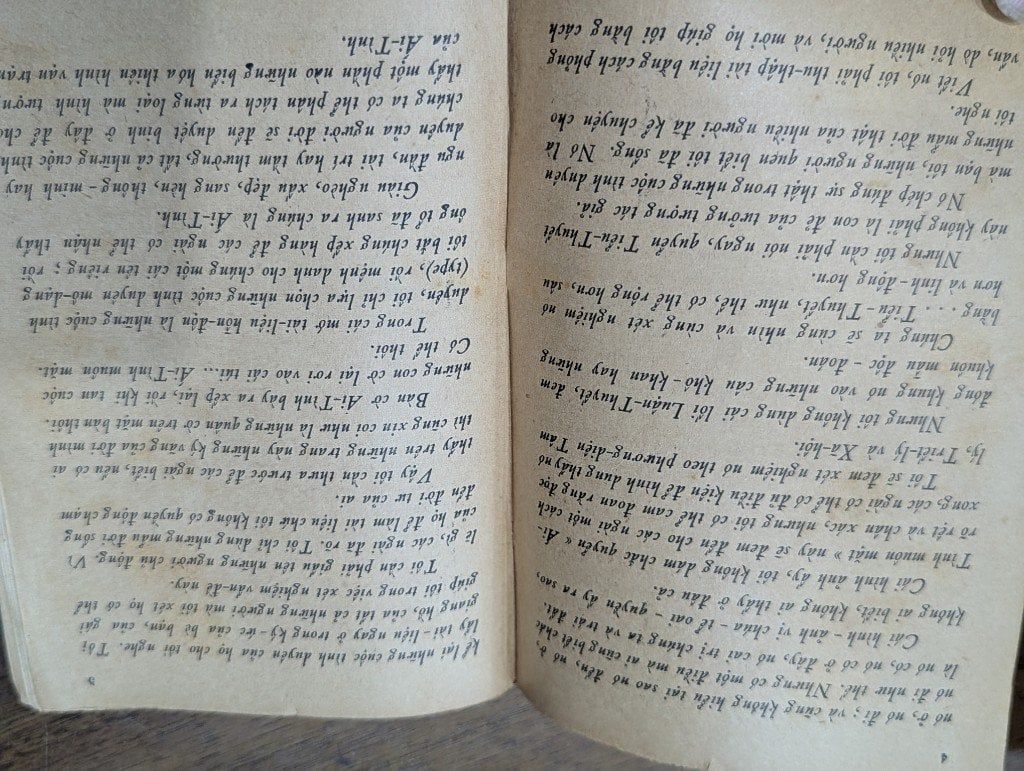 4
nó ở, nó đi ; và cũng không hiểu tại sao nó đến, nó ở,
nó đi như thế. Nhưng có một điều mà ai cũng biết chắc
là nó có, nó có ở đây, nó cai trị chúng ta và trái đất.
Cái hình - ảnh vị chúa - tể oai - quyền ấy ra sao,
không ai biết, không ai thấy ở đâu cả.
Cái hình ảnh ấy, tôi không dám chắc quyển « Ái-
Tình muôn mặt » này sẽ đem đến cho các ngài một cách
rõ rệt và chân xác, nhưng tôi có thể cam đoan rằng đọc
xong, các ngài có thể có đủ điều kiện để hình dung thấy nó
Tôi sẽ đem xét nghiệm nó theo phương-diện Tâm
lý, Triết-lý và Xã-hội.
Nhưng tôi không dùng cái lối Luận-Thuyết, đem
đóng khung nó vào những câu khô - khan hay những
khuôn mẫu độc - đoán.
Chúng ta sẽ cùng nhìn và cùng xét nghiệm nó
bằng . . . Tiểu - Thuyết, như thế, có thể rộng hơn, sâu
hơn và linh - động hơn
Nhưng tôi cần phải nói ngay, quyển Tiểu-Thuyết
này không phải là con đẻ của tưởng tượng tác giả.
Nó chép đúng sự thật trong những cuộc tình duyên
mà bạn tôi, những người quen biết tôi đã sống. Nó là
những mẩu đời thật của nhiều người đã kể chuyện cho
tôi nghe.
Viết nó, tôi phải thu-thập tài liệu bằng cách phỏng
vấn, dò hỏi nhiều người, và mời họ giúp tôi bằng cách
5
kể lại những cuộc tình duyên của họ cho tôi nghe. Tôi
lấy tài - liệu ngay ở trong ký - ức của bè bạn, của gái
giang hồ, của tất cả những người mà tôi xét họ có thể
giúp tôi trong việc xét nghiệm vấn-đề này.
Tôi cần phải giấu tên những người chủ động. Vì
lẽ gì, các ngài đã rõ. Tôi chỉ dùng những mẩu đời sống
của họ để làm tài liệu chứ tôi không có quyền động chạm
đến đời tư của ai.
Vậy tôi cần thưa trước để các ngài biết, nếu có ai
thấy trên những trang này những kỷ vang của đời mình
thì cũng xin coi như là những quân cờ trên mặt bàn thôi.
Bàn cờ Ái-Tình bày ra xếp lại, rồi khi tan cuộc
những con cờ lại rơi vào cái túi... Ái-Tình muôn mặt.
Có thế thôi.
Trong cái mớ tài-liệu hỗn-độn là những cuộc tình
duyên, tôi chỉ lựa chọn những cuộc tình duyên mô-dạng
(type), rồi mệnh danh cho chúng một cái tên riêng ; rồi
tôi bắt chúng xếp hàng để các ngài có thể nhận thấy
ông tổ đã sanh ra chúng là Ái-Tình.
Giàu nghèo, xấu đẹp, sang hèn, thông - minh hay
ngu đần, tài trí hay tầm thường, tất cả những cuộc tình
duyên của người đời sẽ đến duyệt binh ở đây để cho
chúng ta có thể phân tách ra từng loại mà hình tượn
thấy một phần nào những biến hóa thiên hình vạn trạn
của Ái-Tình.